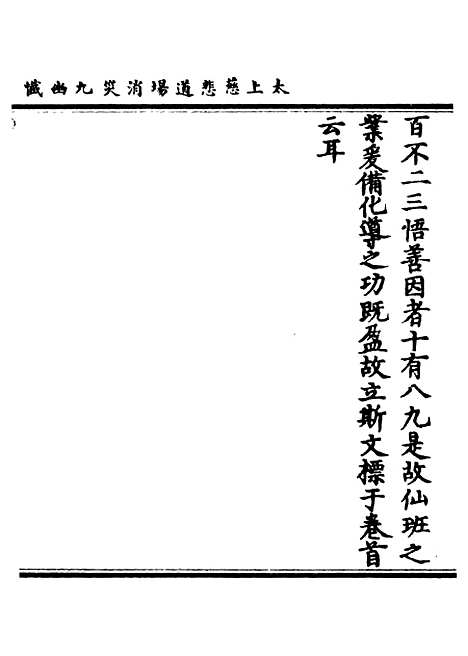 太上慈悲道場消災九幽懺
百不二三悟善因者十有八九是故仙班之
業爰備化導之功既盈故立斯文標于卷首
云耳